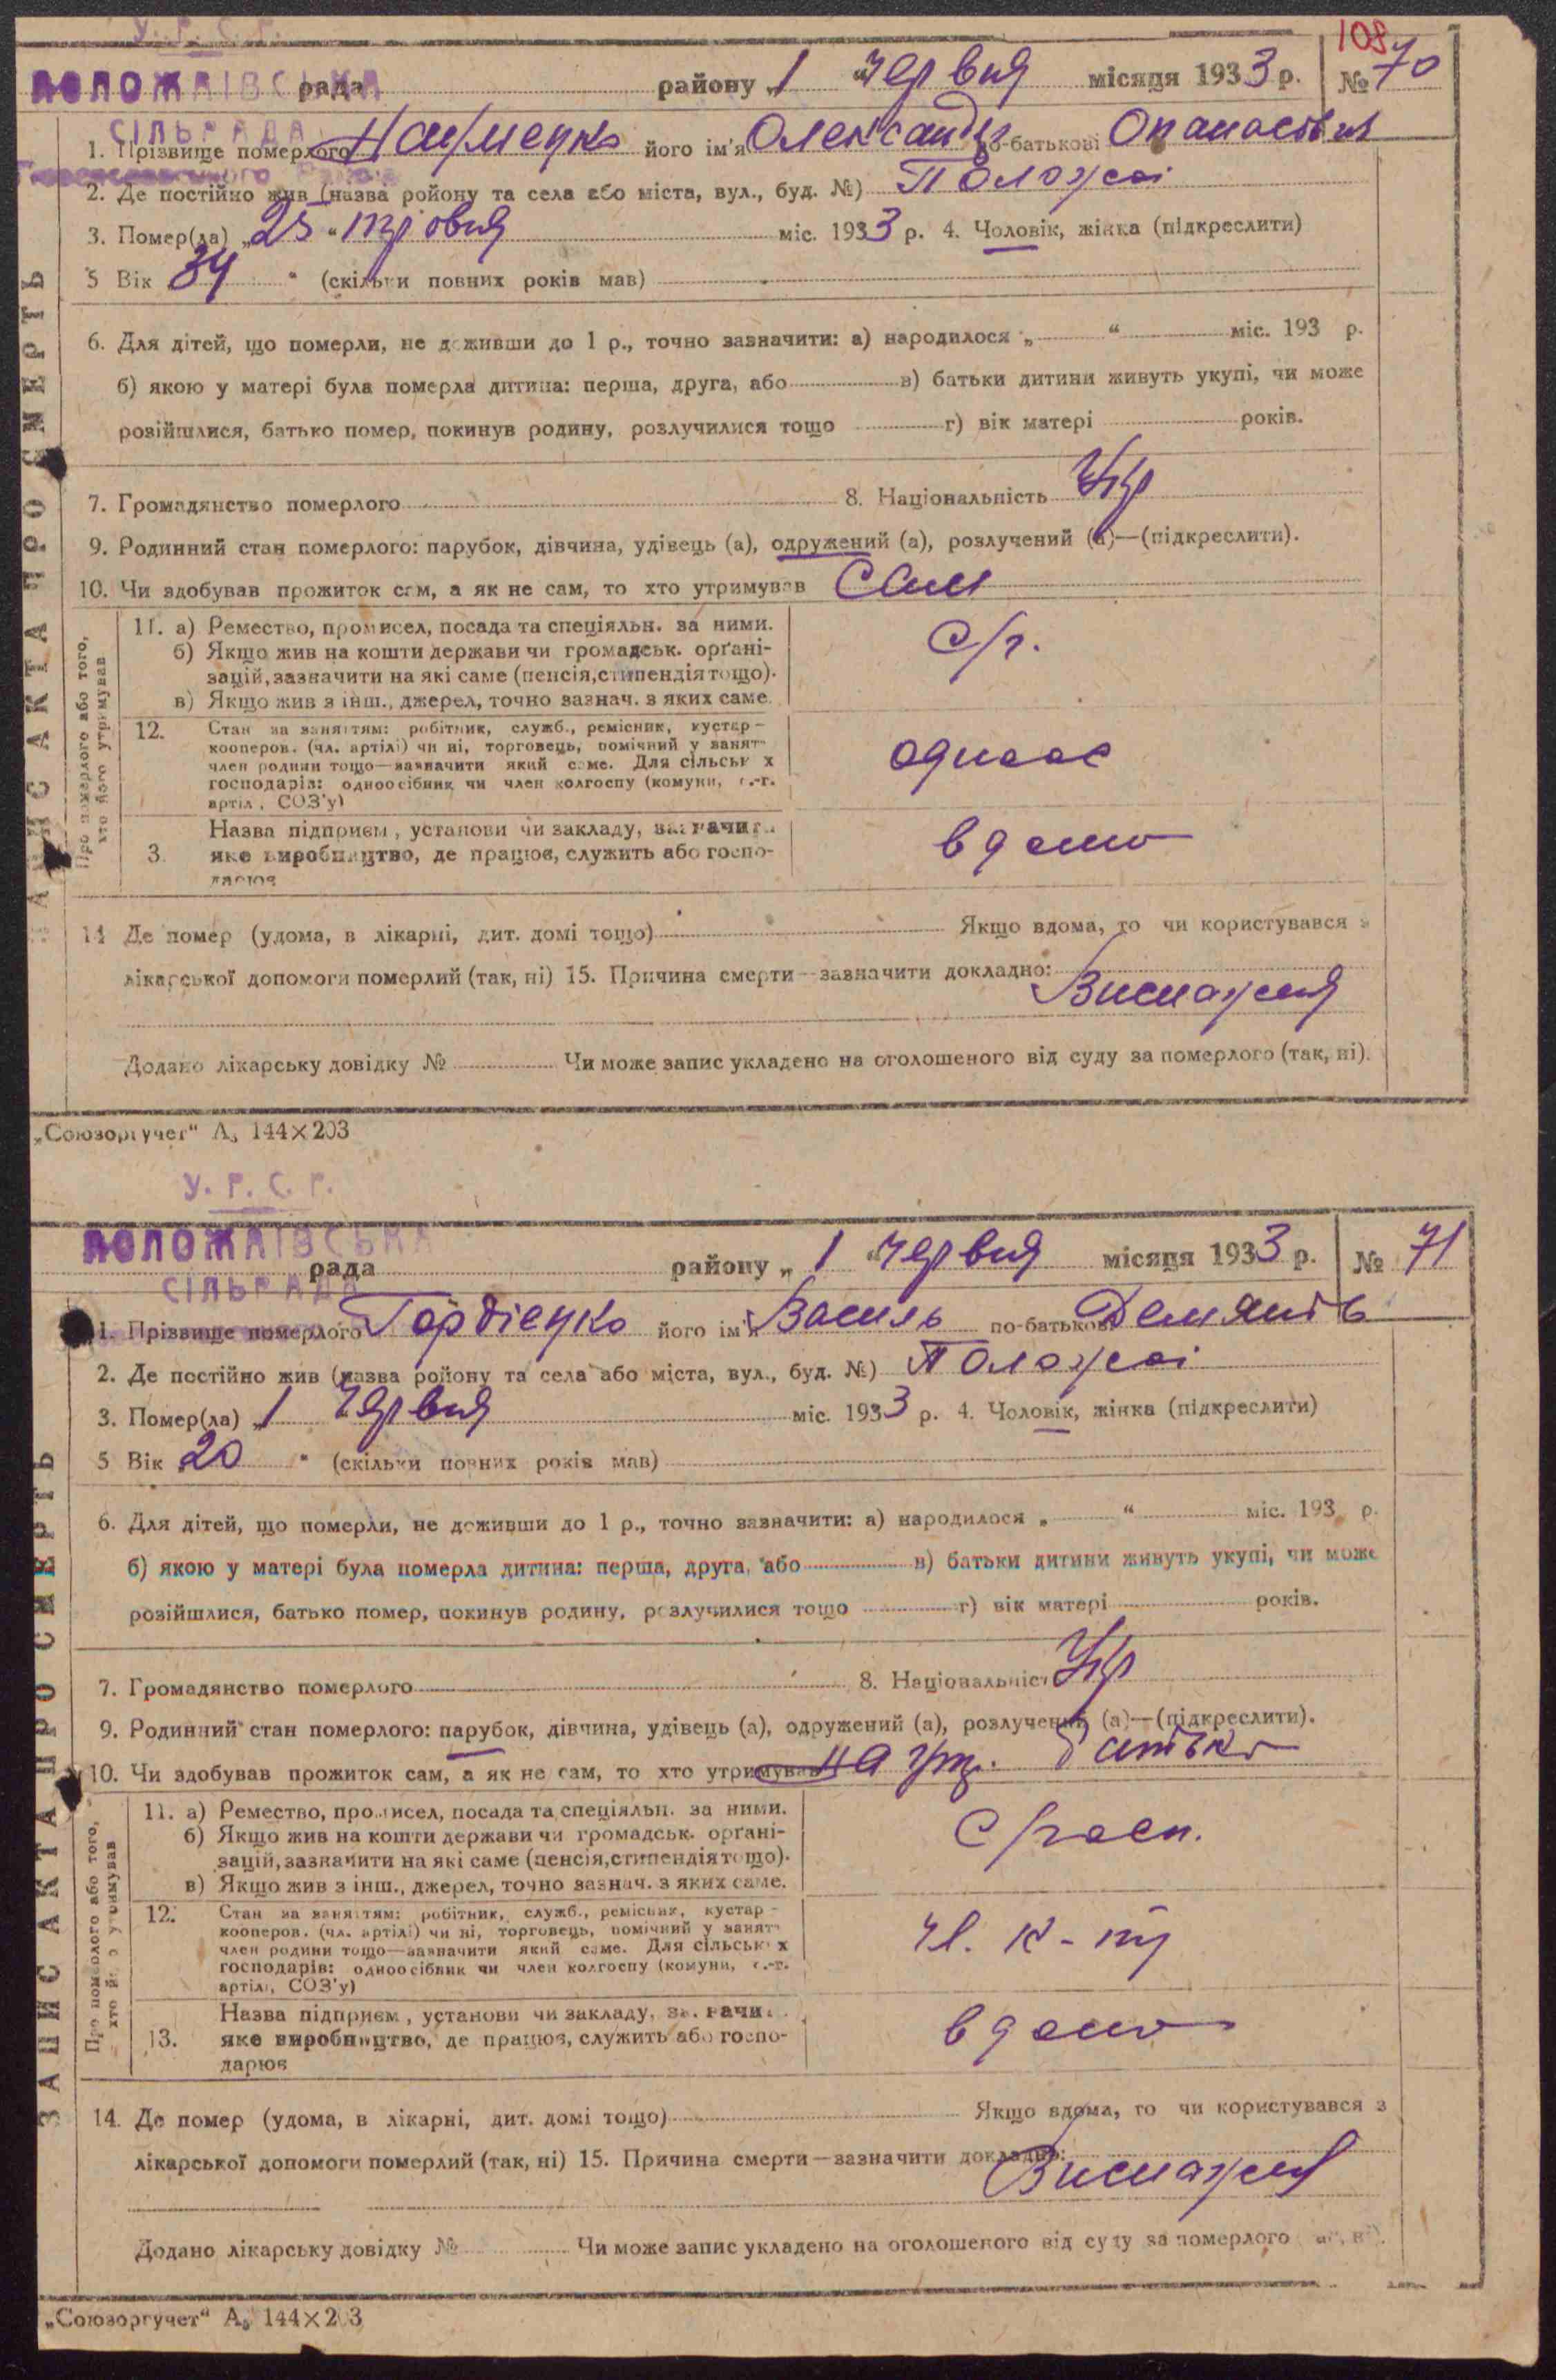 У. Р. С. Р.
108
ПОЛОЖАІВСЬКА рада району „1 “червня місяця 1933 р. № 70
СІЛЬРАДА
1. Прізвище померлого Науменко його ім'я Олександр по-батькові
2. Де постійно жив (назва ройону та села або міста, вул., буд. №) Положаі
3. Помер(ла) „25 “ травня міс. 1933 р. 4. Чоловік, жінка (підкреслити)
5 Вік 34 “ (скільки повних років мав)
6. Для дітей, що померли, не доживши до 1 р., точно зазначити: а) народилося „ “ міс. 193 р.
б) якою у матері була померла дитина: перша, друга, або в) батьки дитини живуть укупі, чи може
розійшлися, батько помер, покинув родину, розлучилися тощо г) вік матері років.
7. Громадянство померлого 8. Національність Укр
9. Родинний стан померлого: парубок, дівчина, удівець (а), одружений (а), розлучений (а)—(підкреслити).
10. Чи здобував прожиток сам, а як не сам, то хто утримував Сам
11. а) Ремество, промисел, посада та спеціяльн. за ними. С/г.
б) Якщо жив на кошти держави чи громадськ. орґані-
зацій, зазначити на які саме (пенсія, стипендія тощо).
в) Якщо жив з інш., джерел, точно зазнач. з яких саме.
12. Стан за заняттям: робітник, служб., ремісник, кустар-
кооперов. (чл. артілі) чи ні, торговець, помічний у занят.
член родини тощо—зазначити який саме. Для сільськ х
господарів: одноосібник чи член колгоспу (комуни, с.-г.
артіл , СОЗ'у) одноос
Назва підприєм , установи чи закладу, зазначити
3. яке виробництво, де працює, служить або госпо-
дарює вдома
14 Де помер (удома, в лікарні, дит. домі тощо) Якщо вдома, то чи користувався з
лікарської допомоги померлий (так, ні) 15. Причина смерти—зазначити докладно:
Виснаження
Додано лікарську довідку № Чи може запис укладено на оголошеного від суду за померлого (так, ні).
ЗАПИС АКТА ПРО СМЕРТЬ
Про померлого або того,
хто його утримував
„Союзоргучет“ А₅ 144×203
У. Р. С. Р.
ПОЛОЖАІВСЬКА рада району „ 1 “червня місяця 1933 р. № 71
СІЛЬРАДА
1. Прізвище померлого Гордіенко його ім'я Василь по-батькові
2. Де постійно жив (назва ройону та села або міста, вул., буд. №) Положаі
3. Помер(ла) „1 червня міс. 1933 р. 4. Чоловік, жінка (підкреслити)
5 Вік 20 “ (скільки повних років мав)
6. Для дітей, що померли, не доживши до 1 р., точно зазначити: а) народилося „ “ міс. 193 р.
б) якою у матері була померла дитина: перша, друга, або в) батьки дитини живуть укупі, чи може
розійшлися, батько помер, покинув родину, розлучилися тощо г) вік матері років.
7. Громадянство померлого 8. Національніст Укр
9. Родинний стан померлого: парубок, дівчина, удівець (а), одружений (а), розлучений (а)—(підкреслити).
10. Чи здобував прожиток сам, а як не сам, то хто утримував на утр. батька
11. а) Ремество, промисел, посада та спеціяльн. за ними. С/госп.
б) Якщо жив на кошти держави чи громадськ. орґані-
зацій, зазначити на які саме (пенсія, стипендія тощо).
в) Якщо жив з інш., джерел, точно зазнач. з яких саме.
12. Стан за заняттям: робітник, служб., ремісник, кустар-
кооперов. (чл. артілі) чи ні, торговець, помічний у занят.
член родини тощо—зазначити який саме. Для сільськ х
господарів: одноосібник чи член колгоспу (комуни, с.-г.
артілі, СОЗ'у) чл. к-пу
Назва підприєм , установи чи закладу, зазначити
13. яке виробництво, де працює, служить або госпо-
дарює вдома
14. Де помер (удома, в лікарні, дит. домі тощо) Якщо вдома, то чи користувався з
лікарської допомоги померлий (так, ні) 15. Причина смерти—зазначити докладно:
Виснаження
Додано лікарську довідку № Чи може запис укладено на оголошеного від суду за померлого
ЗАПИС АКТА ПРО СМЕРТЬ
Про померлого або того,
хто його утримував
„Союзоргучет“ А₅ 144×203